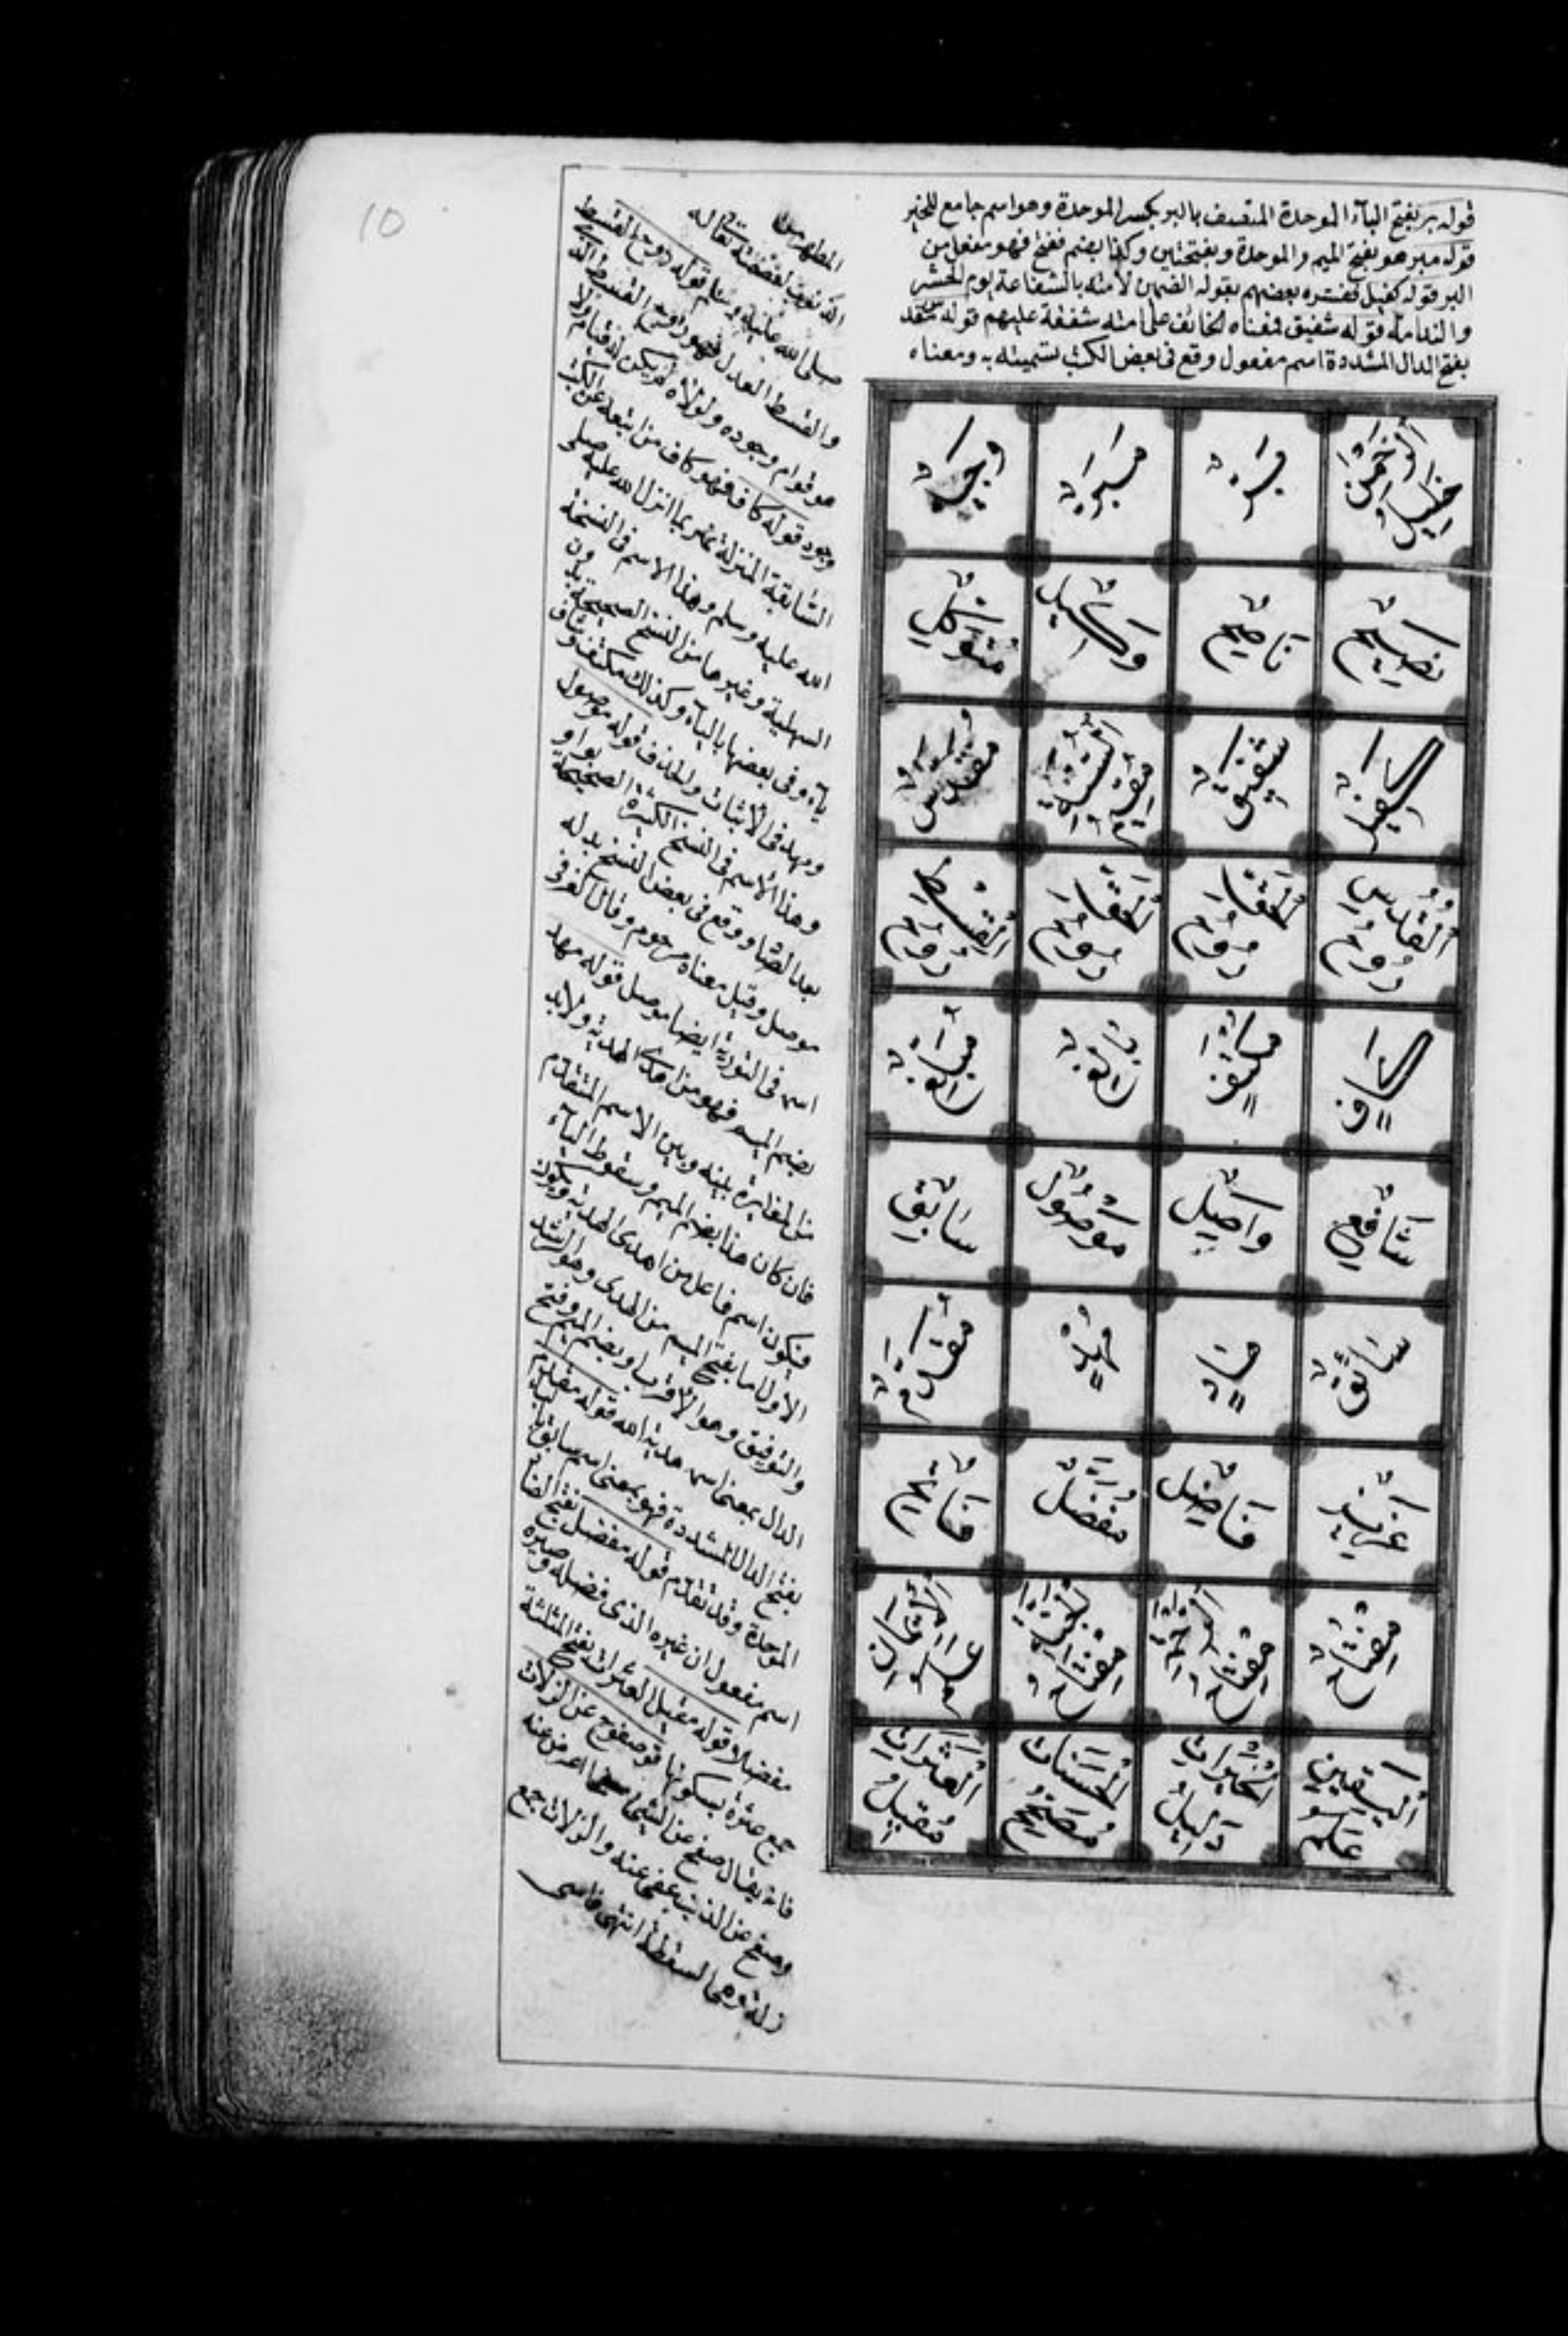 10
قوله بر بفتح الباء الموحدة المتصف بالبر بكسر الموحدة وهو اسم جامع للخير
قوله مبر هو بفتح الميم والموحدة وبفتحتين وكذا بضم ففتح فهو مفعل من
البر قوله كفيل فسره بعضهم بقوله الضمين لأمته بالشفاعة يوم الحشر
والندامة قوله شفيق معناه الخائف على أمته شفقة عليهم قوله مقدس
بفتح الدال المشددة اسم مفعول وقع في بعض الكتب تسميته به ومعناه
خليل الرحمن بر مبر وجيه
نصيح ناصح وكيل متوكل
كفيل شفيق مقيم السنة مقدس
روح القدس روح الحق روح الحق روح القسط
كاف مكتف بالغ مبلغ
شاف واصل موصول سابق
سائق هاد مهد مقدم
عزيز فاضل مفضل فاتح
مفتاح مفتاح الرحمة مفتاح الجنة علم الإيمان
علم اليقين دليل الخيرات مصحح الحسنات مقيل العثرات
المطهر من
صلى الله عليه وسلم قوله روح القسط
والقسط العدل فهو روح القسط الذي
هو قوام وجوده ولولاه لم يكن له قيام ولا
وجود قوله كاف فهو كاف من اتبعه عن الكتب
السابقة المنزلة بما أنزل الله عليه صلى
الله عليه وسلم وهذا الاسم في النسخة
السهلية وغيرها من النسخ الصحيحة بلا
ياء وفي بعضها بالياء وكذلك مكتف وشاف
ومهد في الإثبات والحذف قوله موصول
وهذا الاسم في النسخ الكثيرة الصحيحة بواو
بعد الصاد ووقع في بعض النسخ بدله
موصل وقيل معناه مرحوم وقال العزفي
اسمه في التورية أيضا موصل قوله مهد
بضم الميم فهو من الهدية ولابد
من المغايرة بينه وبين الاسم المتقدم
فان كان هذا بضم الميم وسقوط الياء
فيكون اسم فاعل من أهدى الهدية ويكون
الاول اما بفتح الميم من الهدى وهو الرشد
والتوفيق وهو الأقرب أو بضم الميم وفتح
الدال بمعنى اسمه هدية الله قوله مقدم
بفتح الدال المشددة فهو بمعنى اسم سابق بالباء
الموحدة وقد تقدم قوله مفضل بفتح الضاد
اسم مفعول أن غيره الذي فضله وصيره
مفضلا قوله مقيل العثرات بفتح المثلثة
جمع عثرة بسكونها قوله صفوح عن الزلات
فانه يقال صفح عن الشيء اعرض عنه
وصفح عن الذنب عفى عنه والزلات جمع
زلة وهي السقطة انتهى فاسي